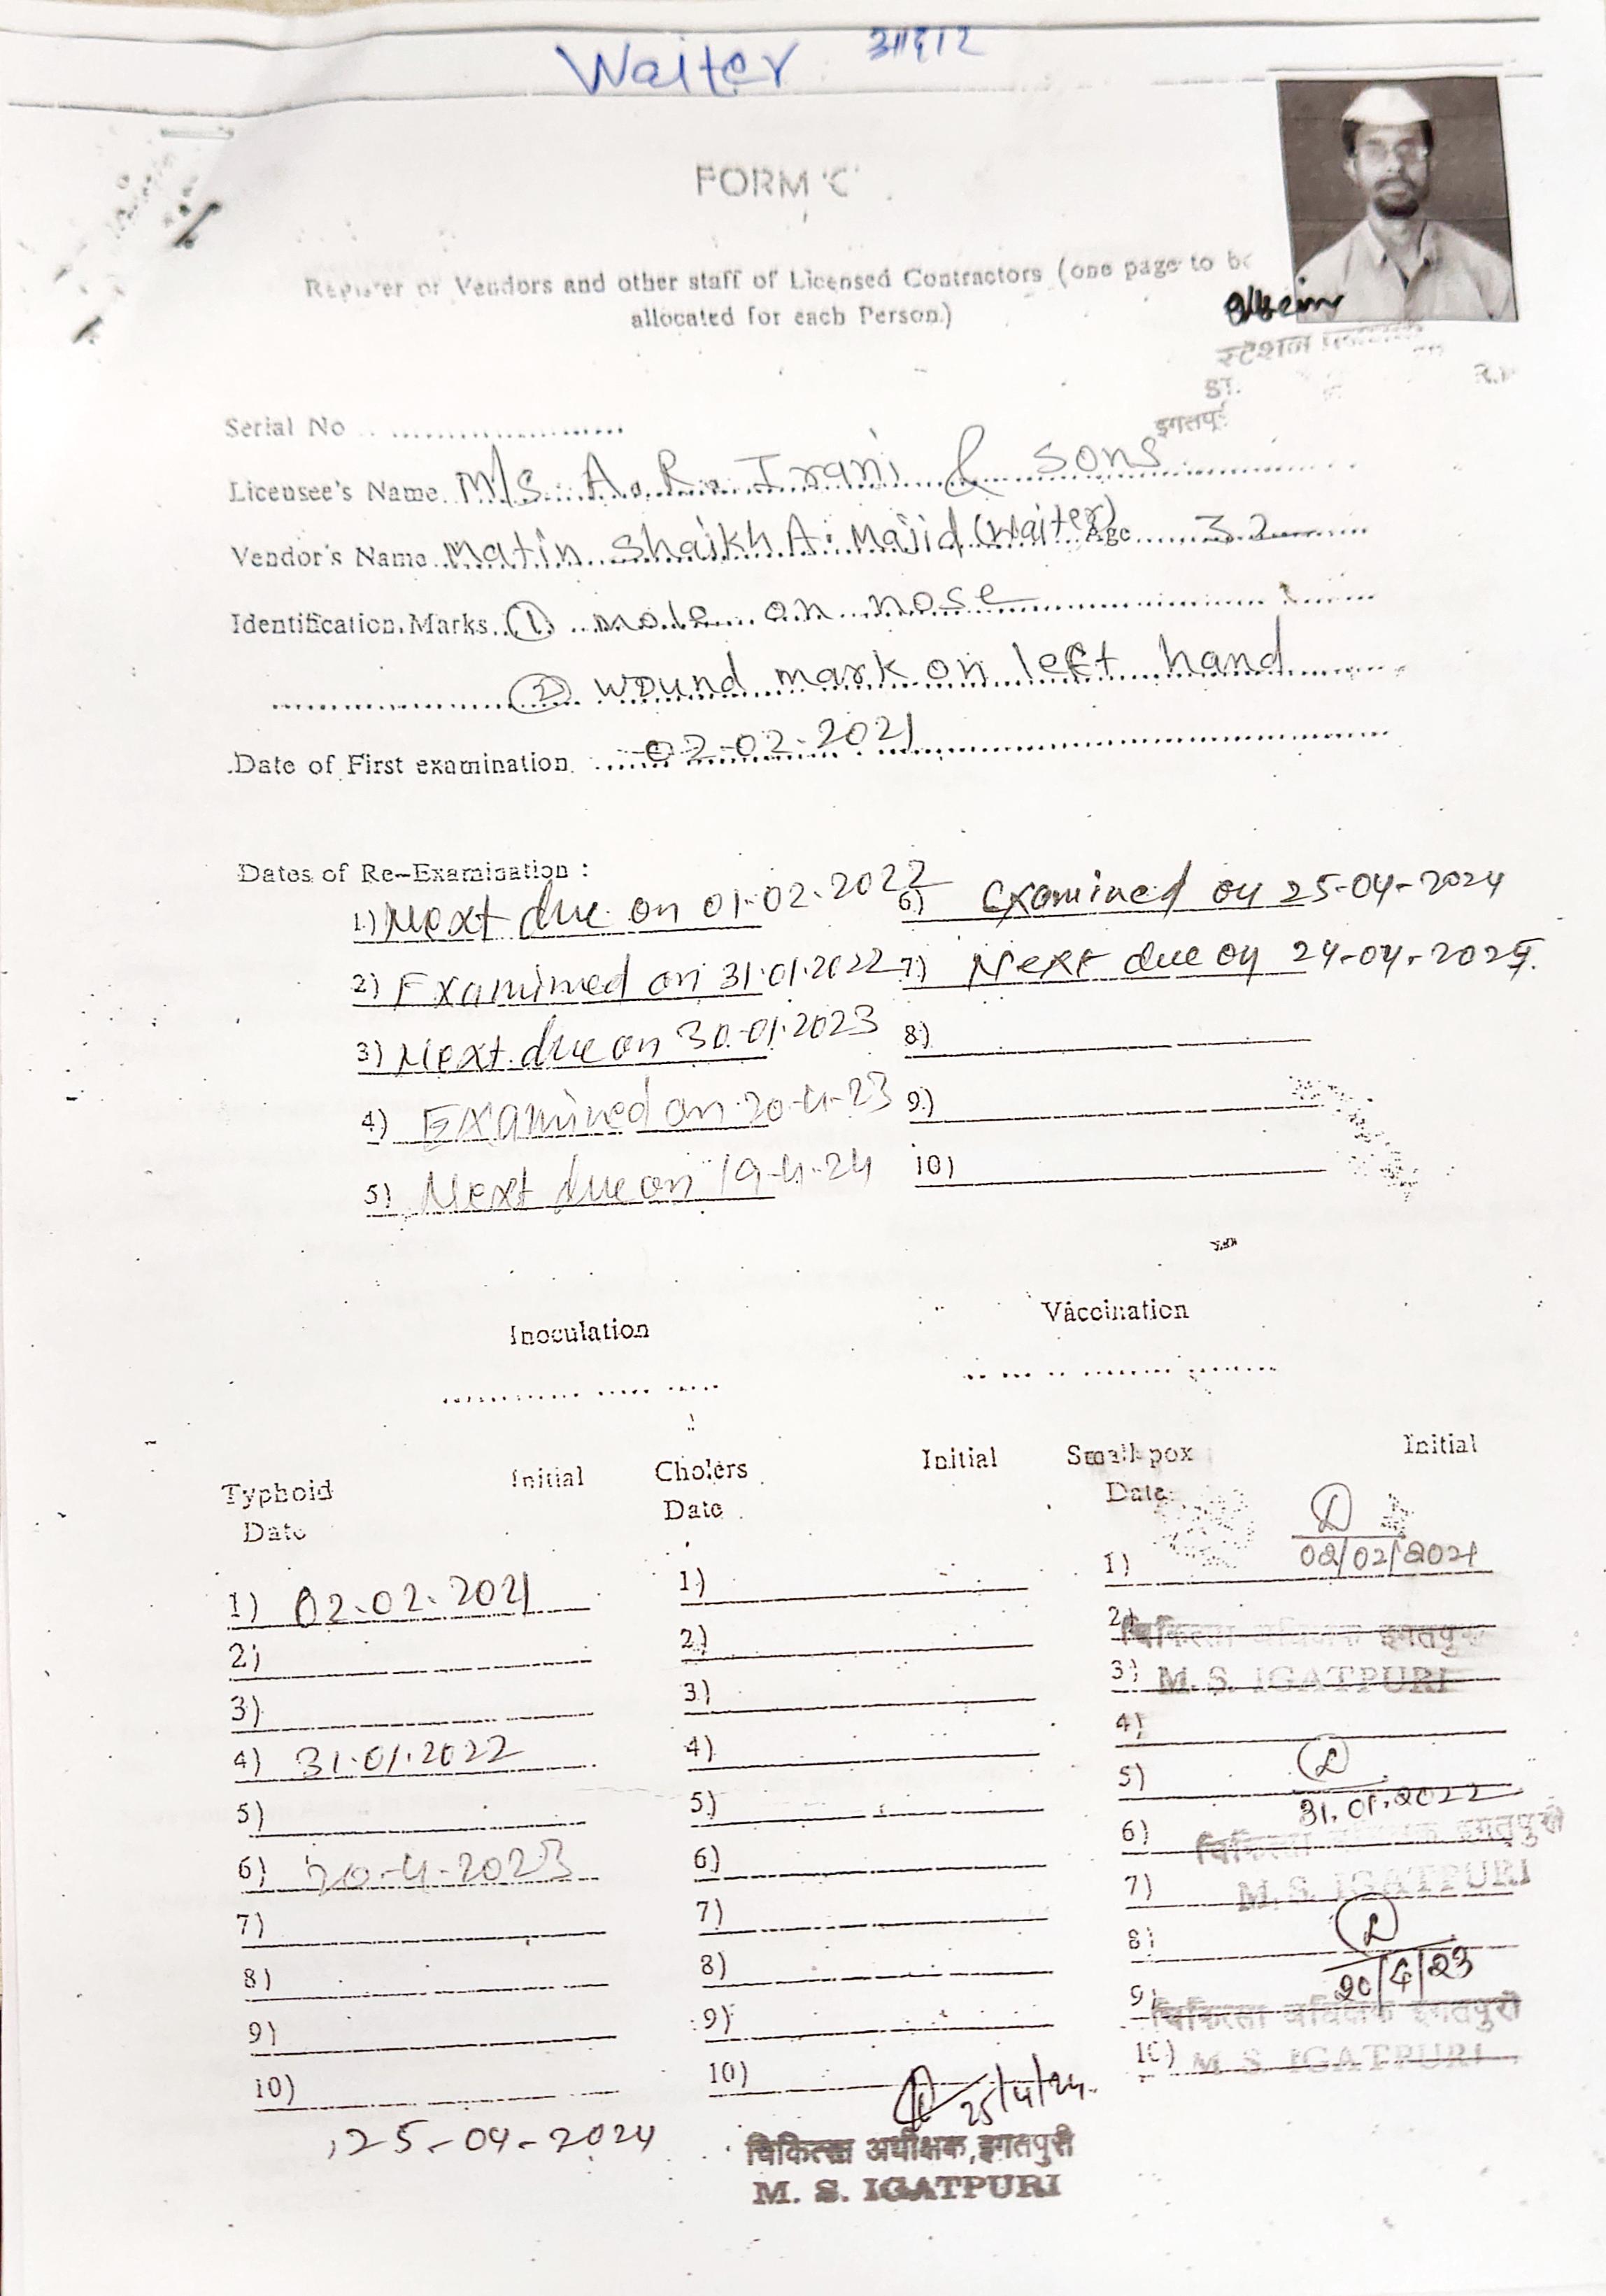 Waiter आहार
FORM 'C'
Register of Vendors and other staff of Licensed Contractors (one page to be
allocated for each Person.)
स्टेशन
इगतपुरी
Serial No
Licensee's Name M/S. A. R. Irani & sons
Vendor's Name Matin Shaikh A. Majid (Waiter) Age 32
Identification Marks ① mole on nose
② wound mark on left hand
Date of First examination 02-02-2021
Dates of Re-Examination :
1) Next due on 01-02-2022 6) Examined on 25-04-2024
2) Examined on 31.01.2022 7) Next due on 24-04-2025.
3) Next due on 30-01-2023 8)
4) Examined on 20-4-23 9)
5) Next due on 19-4-24 10)
Inoculation Vaccination
Typhoid Initial Cholers Initial Small pox Initial
Date Date Date
02/02/2021
1) 02.02.2021 1) 1)
2) 2) 2)
चिकित्सा अधिक्षक इगतपुरी
3) 3) 3) M. S. IGATPURI
4) 31.01.2022 4) 4)
5) 5) 5)
31.01.2022
6) 20-4-2023 6) 6) चिकित्सा अधिक्षक इगतपुरी
7) 7) 7) M. S. IGATPURI
8) 8) 8)
20/4/23
9) 9) 9) चिकित्सा अधिक्षक इगतपुरी
10) 10) 10) M S. IGATPURI
25/4/24
25-04-2024
चिकित्सा अधीक्षक, इगतपुरी
M. S. IGATPURI